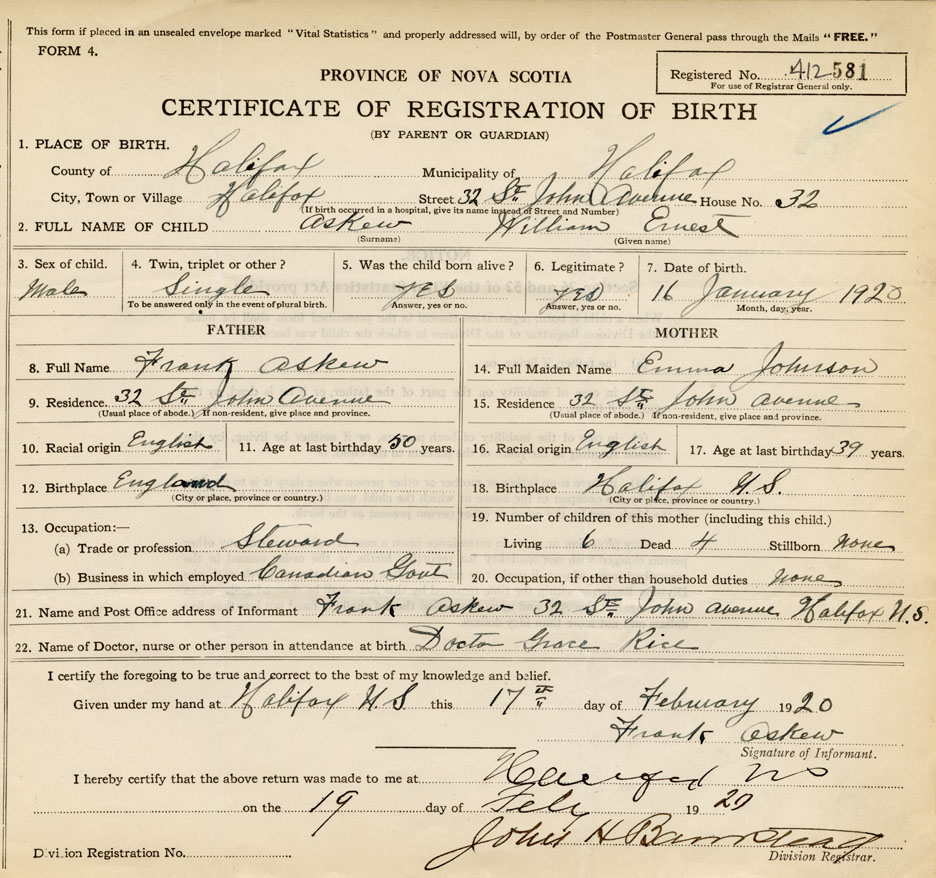 This form if placed in an unsealed envelope marked "Vital Statistics" and properly addressed will, by order of the Postmaster General pass through the Mails "FREE."
FORM 4.
PROVINCE OF NOVA SCOTIA
Registered No. 412581
For use of Registrar General only.
CERTIFICATE OF REGISTRATION OF BIRTH
(BY PARENT OR GUARDIAN)
1. PLACE OF BIRTH.
County of Halifax Municipality of Halifax
City, Town or Village Halifax Street 32 St John Avenue House No. 32
(If birth occurred in a hospital, give its name instead of Street and Number)
2. FULL NAME OF CHILD Askew William Ernest
(Surname) (Given name)
3. Sex of child. 4. Twin, triplet or other? 5. Was the child born alive? 6. Legitimate? 7. Date of birth.
Male Single yES yES 16 January 1920
To be answered only in the event of plural birth. Answer, yes or no. Answer, yes or no. Month, day, year.
FATHER MOTHER
8. Full Name Frank Askew 14. Full Maiden Name Emma Johnson
9. Residence. 32 St John Avenue 15. Residence 32 St John avenue
(Usual place of abode.) If non-resident, give place and province. (Usual place of abode.) If non-resident, give place and province.
10. Racial origin English 11. Age at last birthday 50 years. 16. Racial origin English 17. Age at last birthday 39 years.
12. Birthplace England 18. Birthplace Halifax N.S.
(City or place, province or country.) (City or place, province or country.)
13. Occupation:— 19. Number of children of this mother (including this child.)
(a) Trade or profession Steward Living 6 Dead 4 Stillborn None
(b) Business in which employed Canadian Govt 20. Occupation, if other than household duties none
21. Name and Post Office address of Informant Frank Askew 32 St John avenue Halifax N.S.
22. Name of Doctor, nurse or other person in attendance at birth Doctor Grace Rice
I certify the foregoing to be true and correct to the best of my knowledge and belief.
Given under my hand at Halifax N.S this 17th day of February 1920
Frank Askew
Signature of Informant.
I hereby certify that the above return was made to me at Halifax NS
on the 19 day of Feby 1920
John H
Division Registration No. Division Registrar.